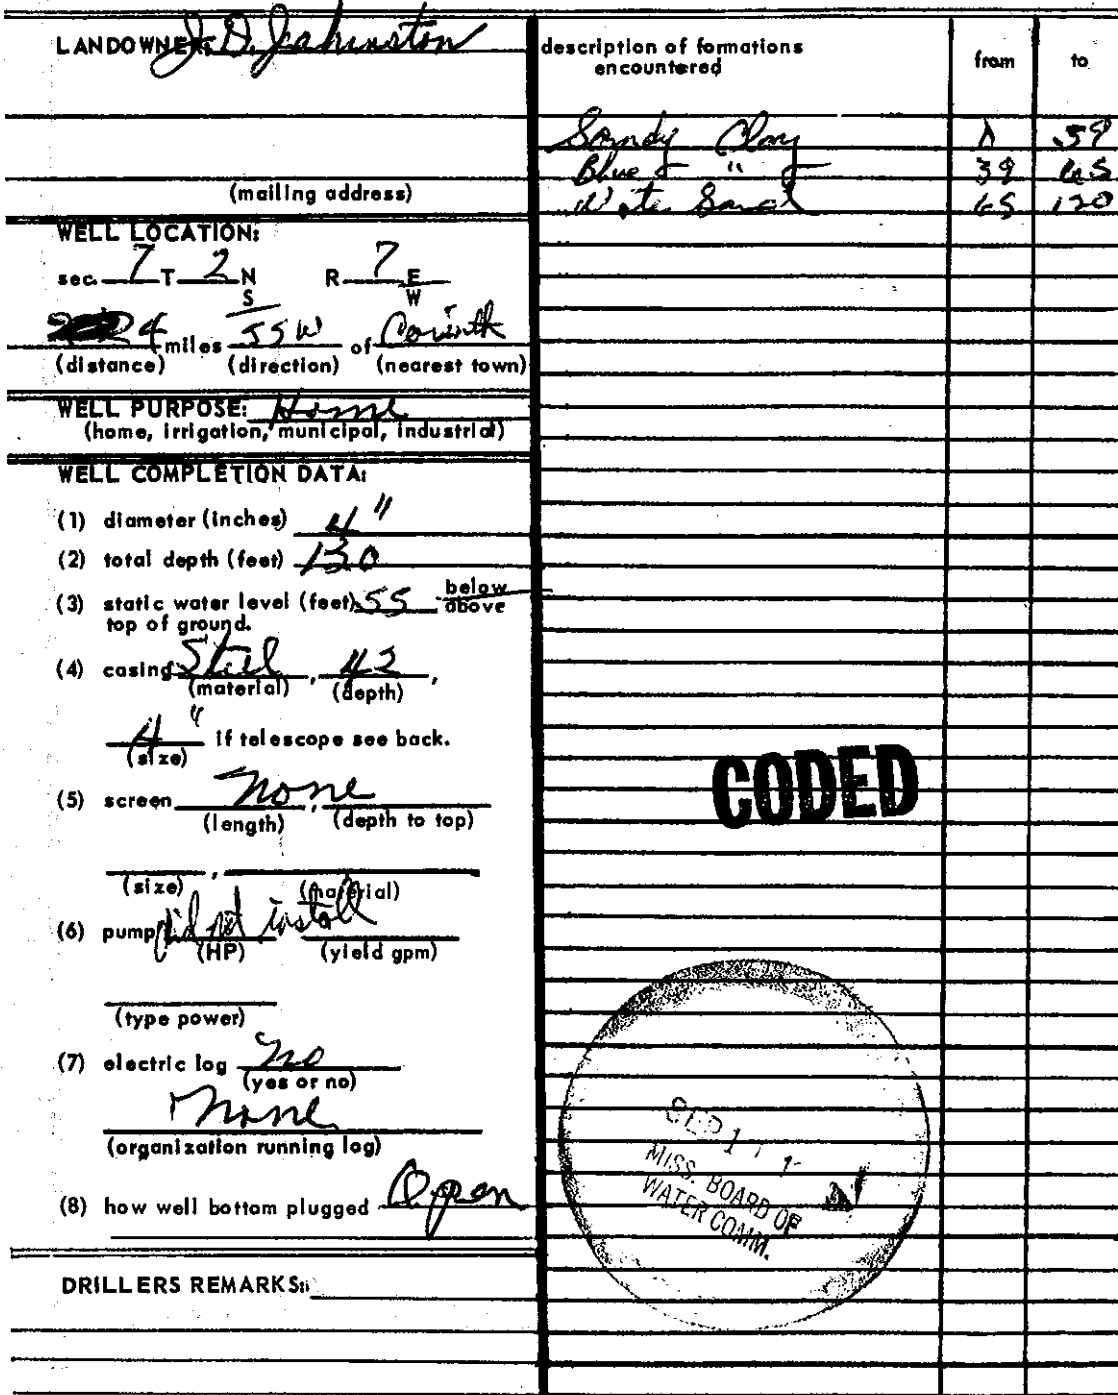 LANDOWNER: J. D. Johnston
(mailing address)
WELL LOCATION:
sec. 7 T 2 N R 7 E
S W
4 miles SSW of Corinth
(distance) (direction) (nearest town)
WELL PURPOSE: Home
(home, irrigation, municipal, industrial)
WELL COMPLETION DATA:
(1) diameter (inches) 4"
(2) total depth (feet)
(3) static water level (feet) 55 below
above
top of ground.
(4) casing Steel, 42,
(material) (depth)
4" if telescope see back.
(size)
(5) screen None,
(length) (depth to top)
(size) , (material)
(6) pump did not install
(HP) (yield gpm)
(type power)
(7) electric log No
(yes or no)
None
(organization running log)
(8) how well bottom plugged Open
DRILLERS REMARKS:
description of formations
encountered
from to
Sandy Clay
Blue " 39 65
Water Sand 65 120
CODED
SEP 1
MISS. BOARD OF
WATER COMM.